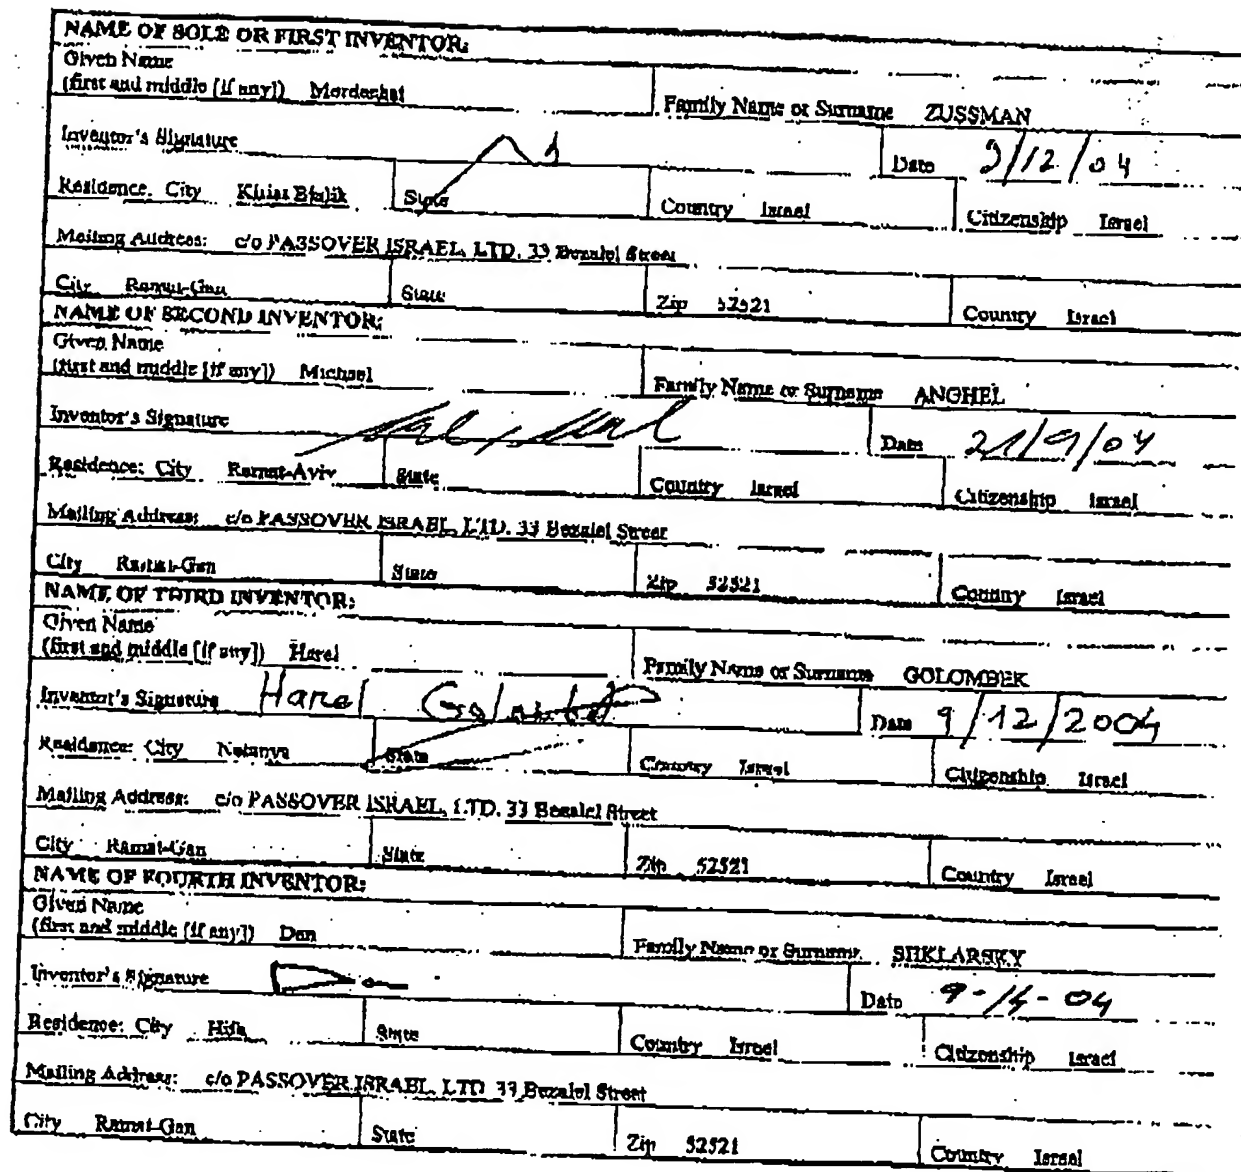 NAME OF SOLE OR FIRST INVENTOR:
Given Name
(first and middle [if any]) Mordechai Family Name or Surname ZUSSMAN
Inventor's Signature Date 9/12/04
Residence: City Kiriat Bialik State Country Israel Citizenship Israel
Mailing Address: c/o PASSOVER ISRAEL, LTD. 33 Bezalel Street
City Ramat-Gan State Zip 52521 Country Israel
NAME OF SECOND INVENTOR:
Given Name
(first and middle [if any]) Michael Family Name or Surname ANGHEL
Inventor's Signature Date 21/9/04
Residence: City Ramat-Aviv State Country Israel Citizenship Israel
Mailing Address: c/o PASSOVER ISRAEL, LTD. 33 Bezalel Street
City Ramat-Gan State Zip 52521 Country Israel
NAME OF THIRD INVENTOR:
Given Name
(first and middle [if any]) Harel Family Name or Surname GOLOMBEK
Inventor's Signature Harel Golombek Date 9/12/2004
Residence: City Netanya State Country Israel Citizenship Israel
Mailing Address: c/o PASSOVER ISRAEL, LTD. 33 Bezalel Street
City Ramat-Gan State Zip 52521 Country Israel
NAME OF FOURTH INVENTOR:
Given Name
(first and middle [if any]) Dan Family Name or Surname SHKLARSKY
Inventor's Signature Date
Residence: City Hifa State Country Israel Citizenship Israel
Mailing Address: c/o PASSOVER ISRAEL, LTD 33 Bezalel Street
City Ramat-Gan State Zip 52521 Country Israel